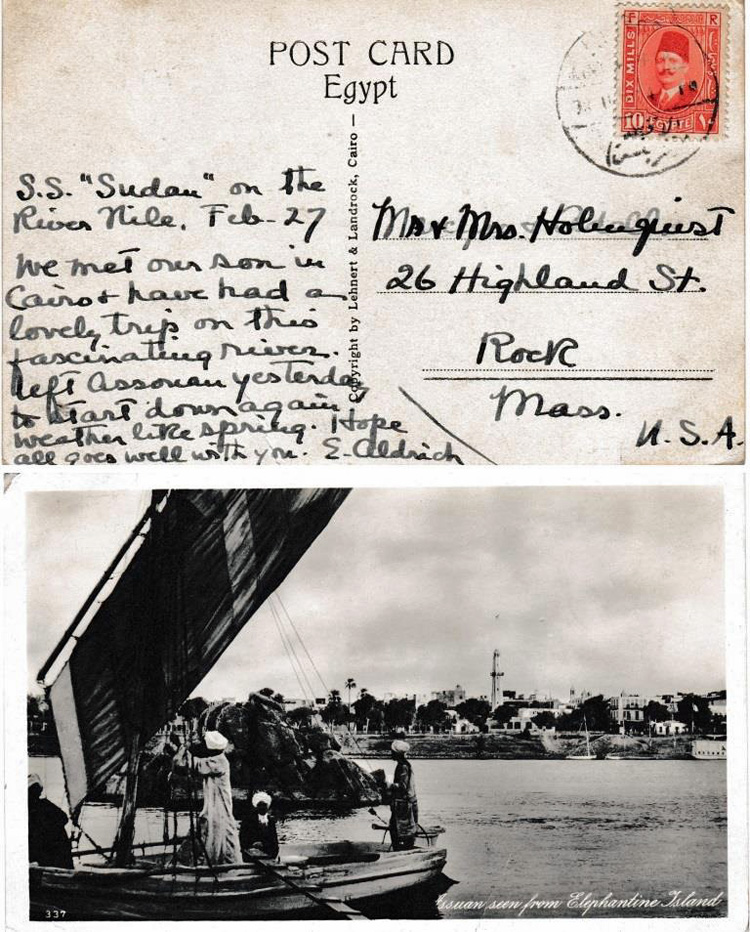 POST CARD
Egypt
DIX MILLS
F R
10 EGYPTE ١٠
S.S. "Sudan" on the
River Nile. Feb-27
We met our son in
Cairo & have had a
lovely trip on this
fascinating river.
left Assouan yesterday
to start down again
weather like spring. Hope
all goes well with you. E. Aldrich
Copyright by Lehnert & Landrock, Cairo –
Mr & Mrs. Holmquist
26 Highland St.
Rock
Mass.
U.S.A.
337
Assuan seen from Elephantine Island